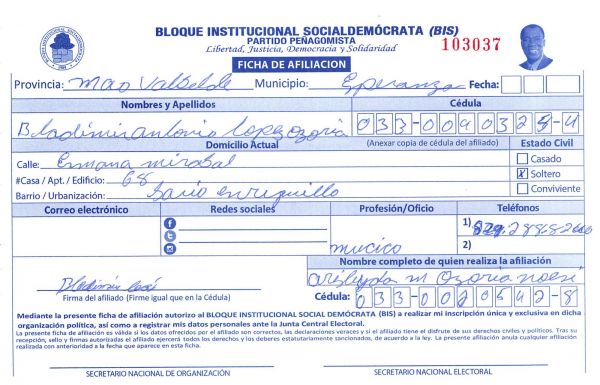 BLOQUE INSTITUCIONAL SOCIALDEMÓCRATA (BIS)
PARTIDO PEÑAGOMISTA
Libertad, Justicia, Democracia y Solidaridad
103037
FICHA DE AFILIACION
Provincia: Mao Valvelde Municipio: Esperanza Fecha:
Nombres y Apellidos Cédula
Bladimir antonio Lopez ozoria 033-0040325-4
Domicilio Actual (Anexar copia de cédula del afiliado) Estado Civil
Calle: Ermana mirabal Casado
#Casa / Apt. / Edificio: 68 X Soltero
Barrio / Urbanización: bario enriquillo Conviviente
Correo electrónico Redes sociales Profesión/Oficio Teléfonos
1) 829,
mucico 2)
Nombre completo de quien realiza la afiliación
m Ozoria
Firma del afiliado (Firme igual que en la Cédula) Cédula: 033-0020542-8
Mediante la presente ficha de afiliación autorizo al BLOQUE INSTITUCIONAL SOCIAL DEMÓCRATA (BIS) a realizar mi inscripción única y exclusiva en dicha
organización política, así como a registrar mis datos personales ante la Junta Central Electoral.
La presente ficha de afiliación es válida si los datos ofrecidos por el afiliado son correctos, las declaraciones veraces y si el afiliado tiene el disfrute de sus derechos civiles y políticos. Tras su
recepción, sello y firmas autorizadas el afiliado ejercerá todos los derechos y los deberes estatutariamente sancionados, de acuerdo a la ley. La presente afiliación anula cualquier afiliación
realizada con anterioridad a la fecha que aparece en esta ficha.
SECRETARIO NACIONAL DE ORGANIZACIÓN SECRETARIO NACIONAL ELECTORAL